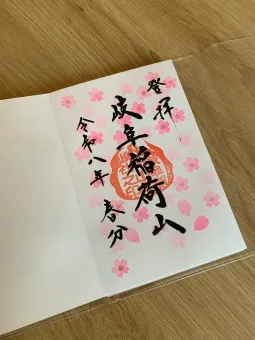 登拝
岐阜稲荷山
令和八年 春分